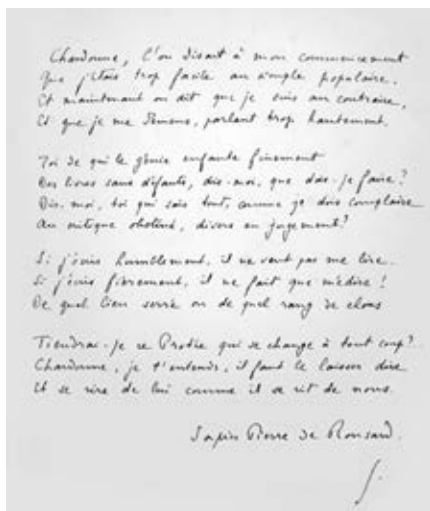 Chardonne, l'on disait à mon commencement
Que j'étais trop facile au simple populaire,
Et maintenant on dit que je suis au contraire,
Et que je me démens, parlant trop hautement.
Toi de qui le génie enfante finement
Des livres sans défauts, dis-moi, que dois-je faire?
Dis-moi, toi qui sais tout, comme je dois complaire
Au critique obstiné, divers en jugement?
Si j'écris humblement, il ne veut pas me lire
Si j'écris fièrement, il ne fait que médire!
De quel lien serré ou de quel rang de clous
Tiendrai-je ce Prothée qui se change à tout coup?
Chardonne, je t'entends, il faut le laisser dire
Et se rire de lui comme il se rit de nous.
Pierre de Ronsard.